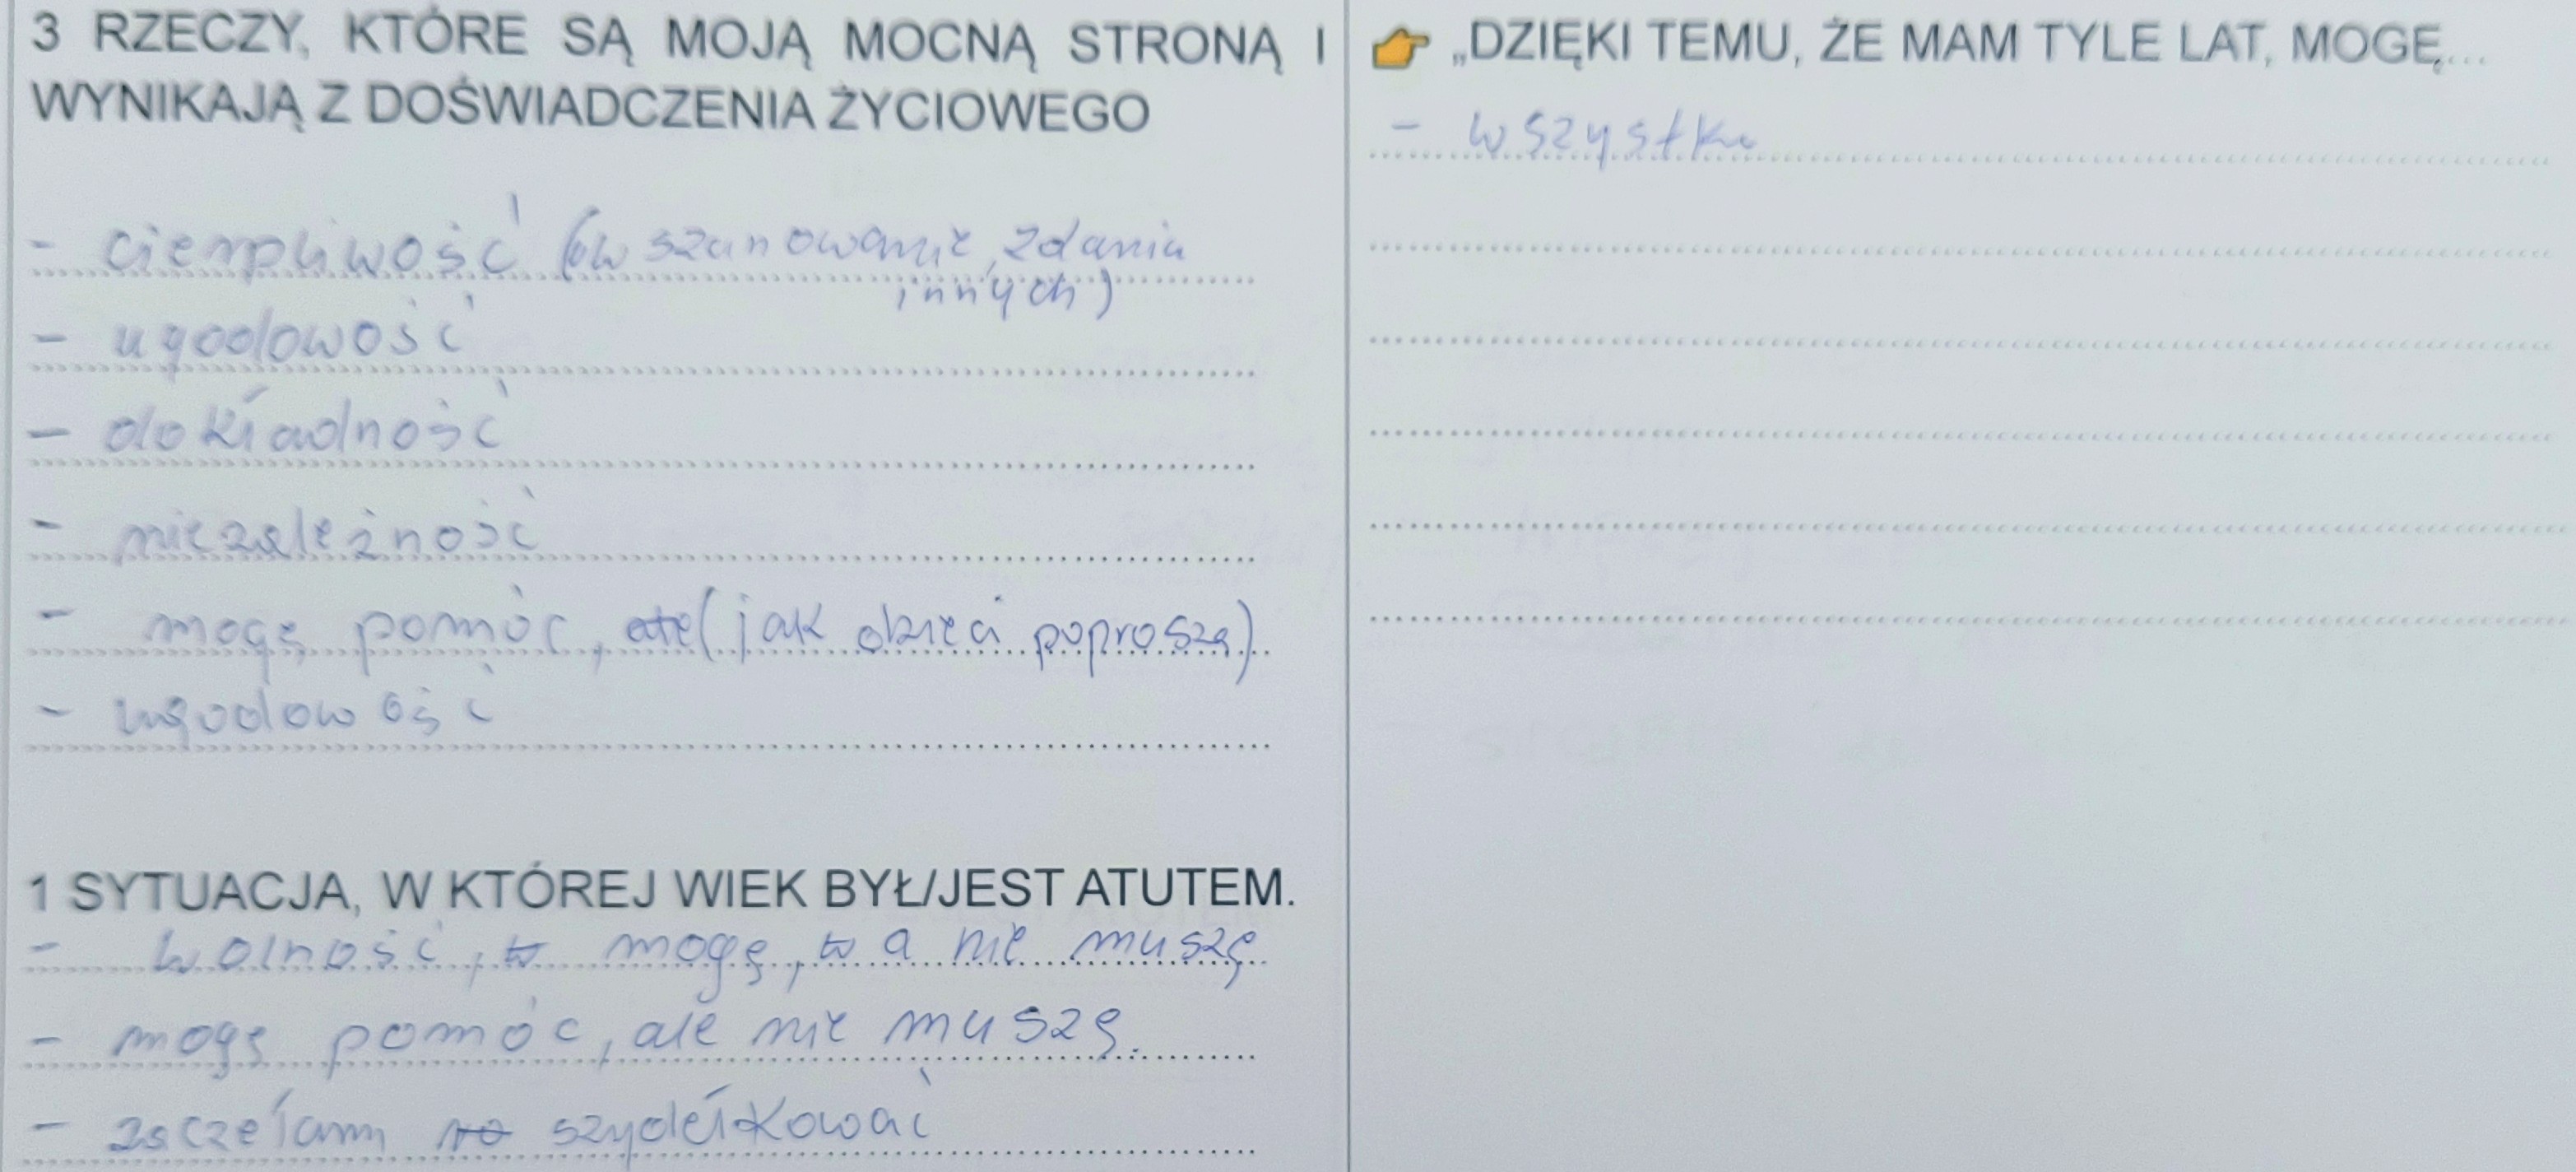 3 RZECZY, KTÓRE SĄ MOJĄ MOCNĄ STRONĄ I
WYNIKAJĄ Z DOŚWIADCZENIA ŻYCIOWEGO
- cierpliwość (w szanowanie, zdania
innych)
- ugodowość
- dokładność
- niezależność
- mogę pomóc, ale (jak dzieci poproszą)
- ugodowość
1 SYTUACJA, W KTÓREJ WIEK BYŁ/JEST ATUTEM.
- wolność, w mogę, w a nie muszę
- mogę pomóc, ale nie muszę.
- zsczełam szydełkować
👉 „DZIĘKI TEMU, ŻE MAM TYLE LAT, MOGĘ...
- wszystko